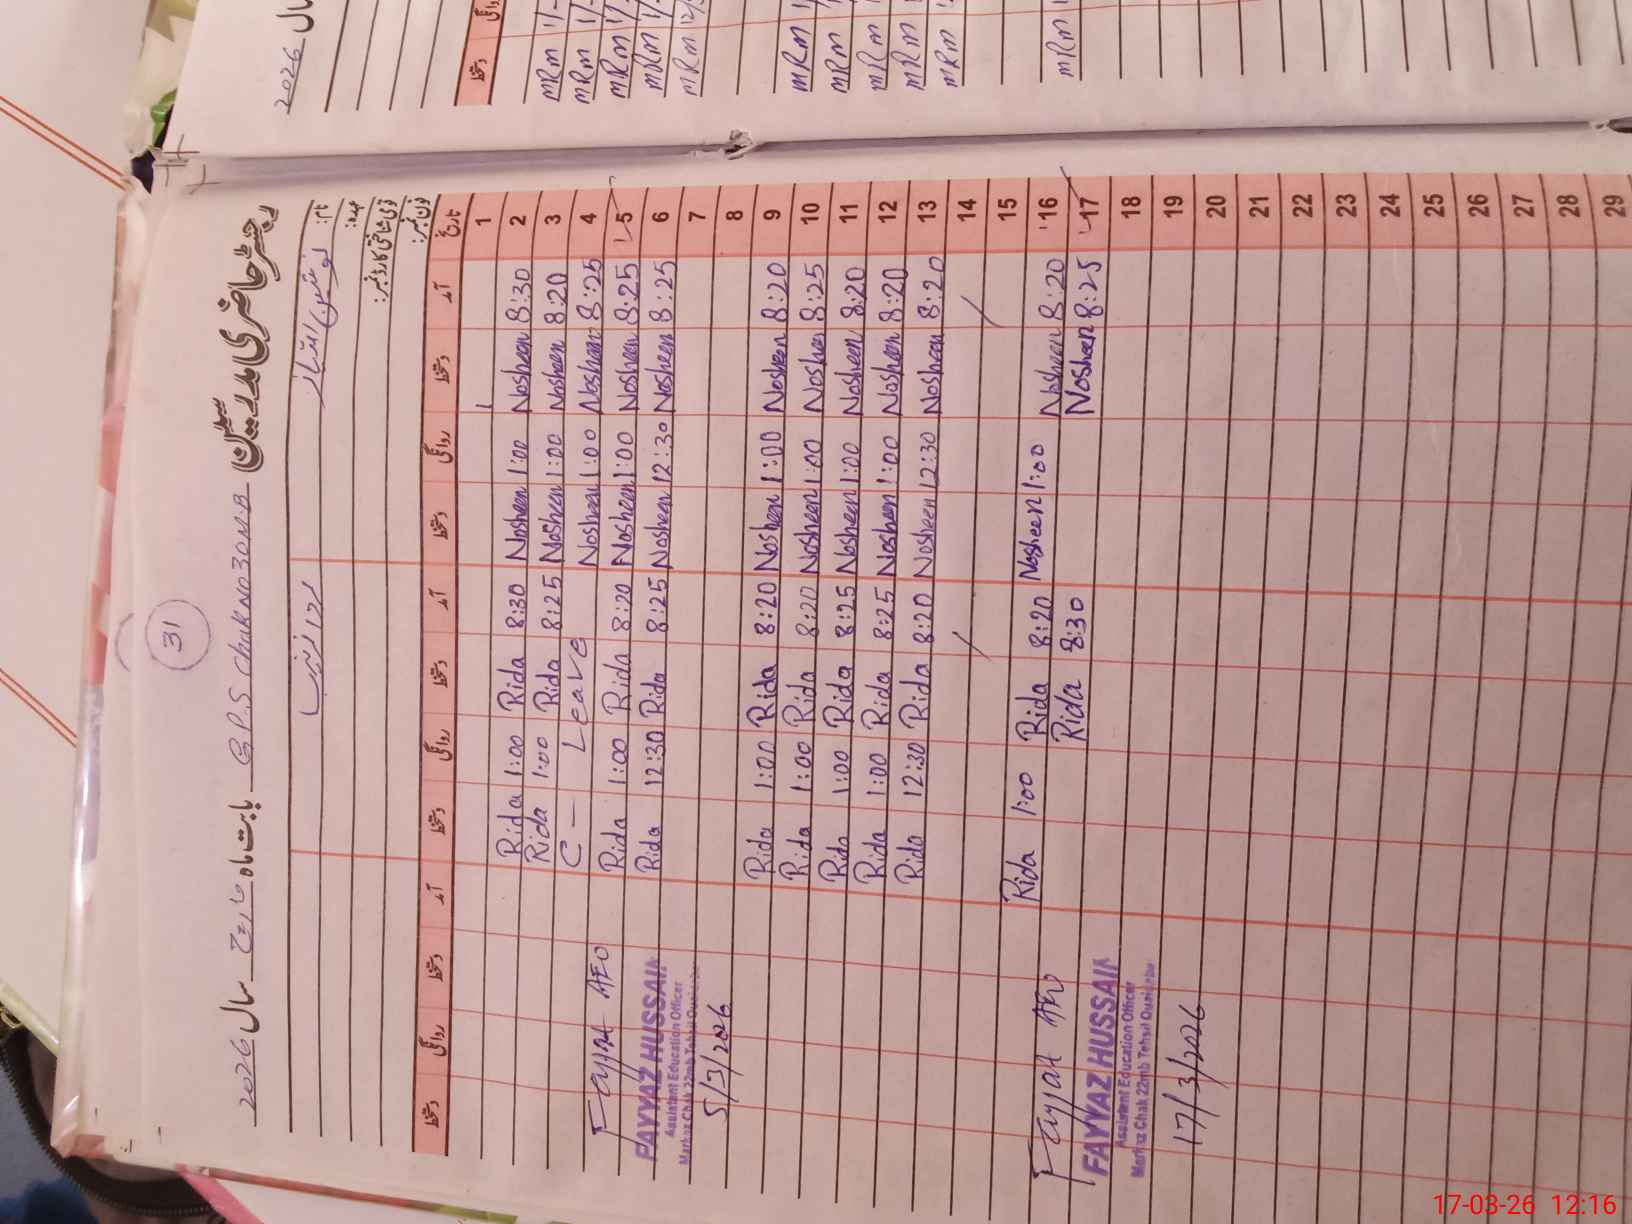 رجسٹر حاضری مدرسین G.P.S Chak No 30 M.B بابت ماہ مارچ سال 2026
31
نام: نوشین اشتیاز ردا زینب
عہدہ:
قومی شناختی کارڈ نمبر:
فون نمبر:
تاریخ آمد دستخط روانگی دستخط آمد دستخط روانگی دستخط آمد دستخط روانگی دستخط
1
2 8:30 Nosheen 1:00 Nosheen 8:30 Rida 1:00 Rida
3 8:20 Nosheen 1:00 Nosheen 8:25 Rida 1:00 Rida
4 8:25 Nosheen 1:00 Nosheen C - Leave
5 8:25 Nosheen 1:00 Nosheen 8:20 Rida 1:00 Rida
6 8:25 Nosheen 12:30 Nosheen 8:25 Rida 12:30 Rida
7
8
9 8:20 Nosheen 1:00 Nosheen 8:20 Rida 1:00 Rida
10 8:25 Nosheen 1:00 Nosheen 8:20 Rida 1:00 Rida
11 8:20 Nosheen 1:00 Nosheen 8:25 Rida 1:00 Rida
12 8:20 Nosheen 1:00 Nosheen 8:25 Rida 1:00 Rida
13 8:20 Nosheen 12:30 Nosheen 8:20 Rida 12:30 Rida
14
15
16 8:20 Nosheen 1:00 Nosheen 8:20 Rida 1:00 Rida
17 8:25 Nosheen 8:30 Rida
18
19
20
21
22
23
24
25
26
27
28
29
AEO
FAYYAZ HUSSAIN
Assistent Education Officer
Markaz Chak 22mb Tehsil
5/3/2026
AEO
FAYYAZ HUSSAIN
Assistent Education Officer
Markaz Chak 22mb Tehsil
17/3/2026
سال 2026
دستخط
MRM
MRM
MRM
MRM
MRM
MRM
MRM
MRM
MRM
MRM
MRM
17-03-26 12:16